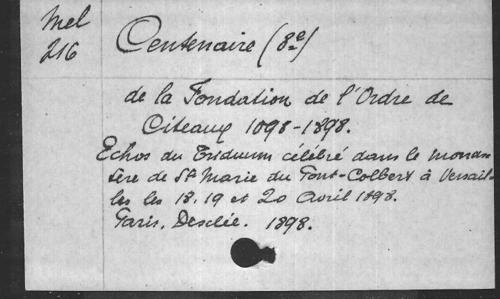 Mel
216
Centenaire (8e)
de la Fondation de l'Ordre de
Citeaux 1098-1898.
Echos du Triduum célébré dans le monas
tère de Ste Marie du Pont-Colbert à Versail-
les les 18. 19 et 20 Avril 1898.
Paris. Desclée. 1898.